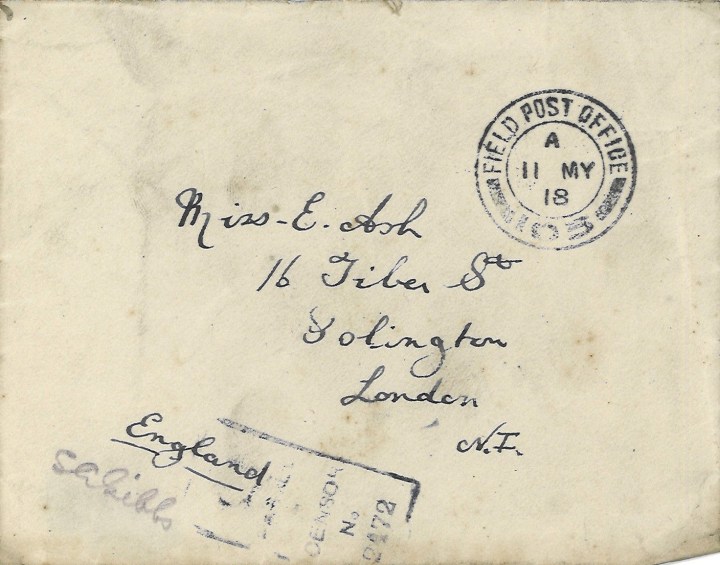 FIELD POST OFFICE
A
11 MY
18
Miss-E. Ash
16 Tiber St
Islington
London
N.1.
England
CENSOR
No
2472